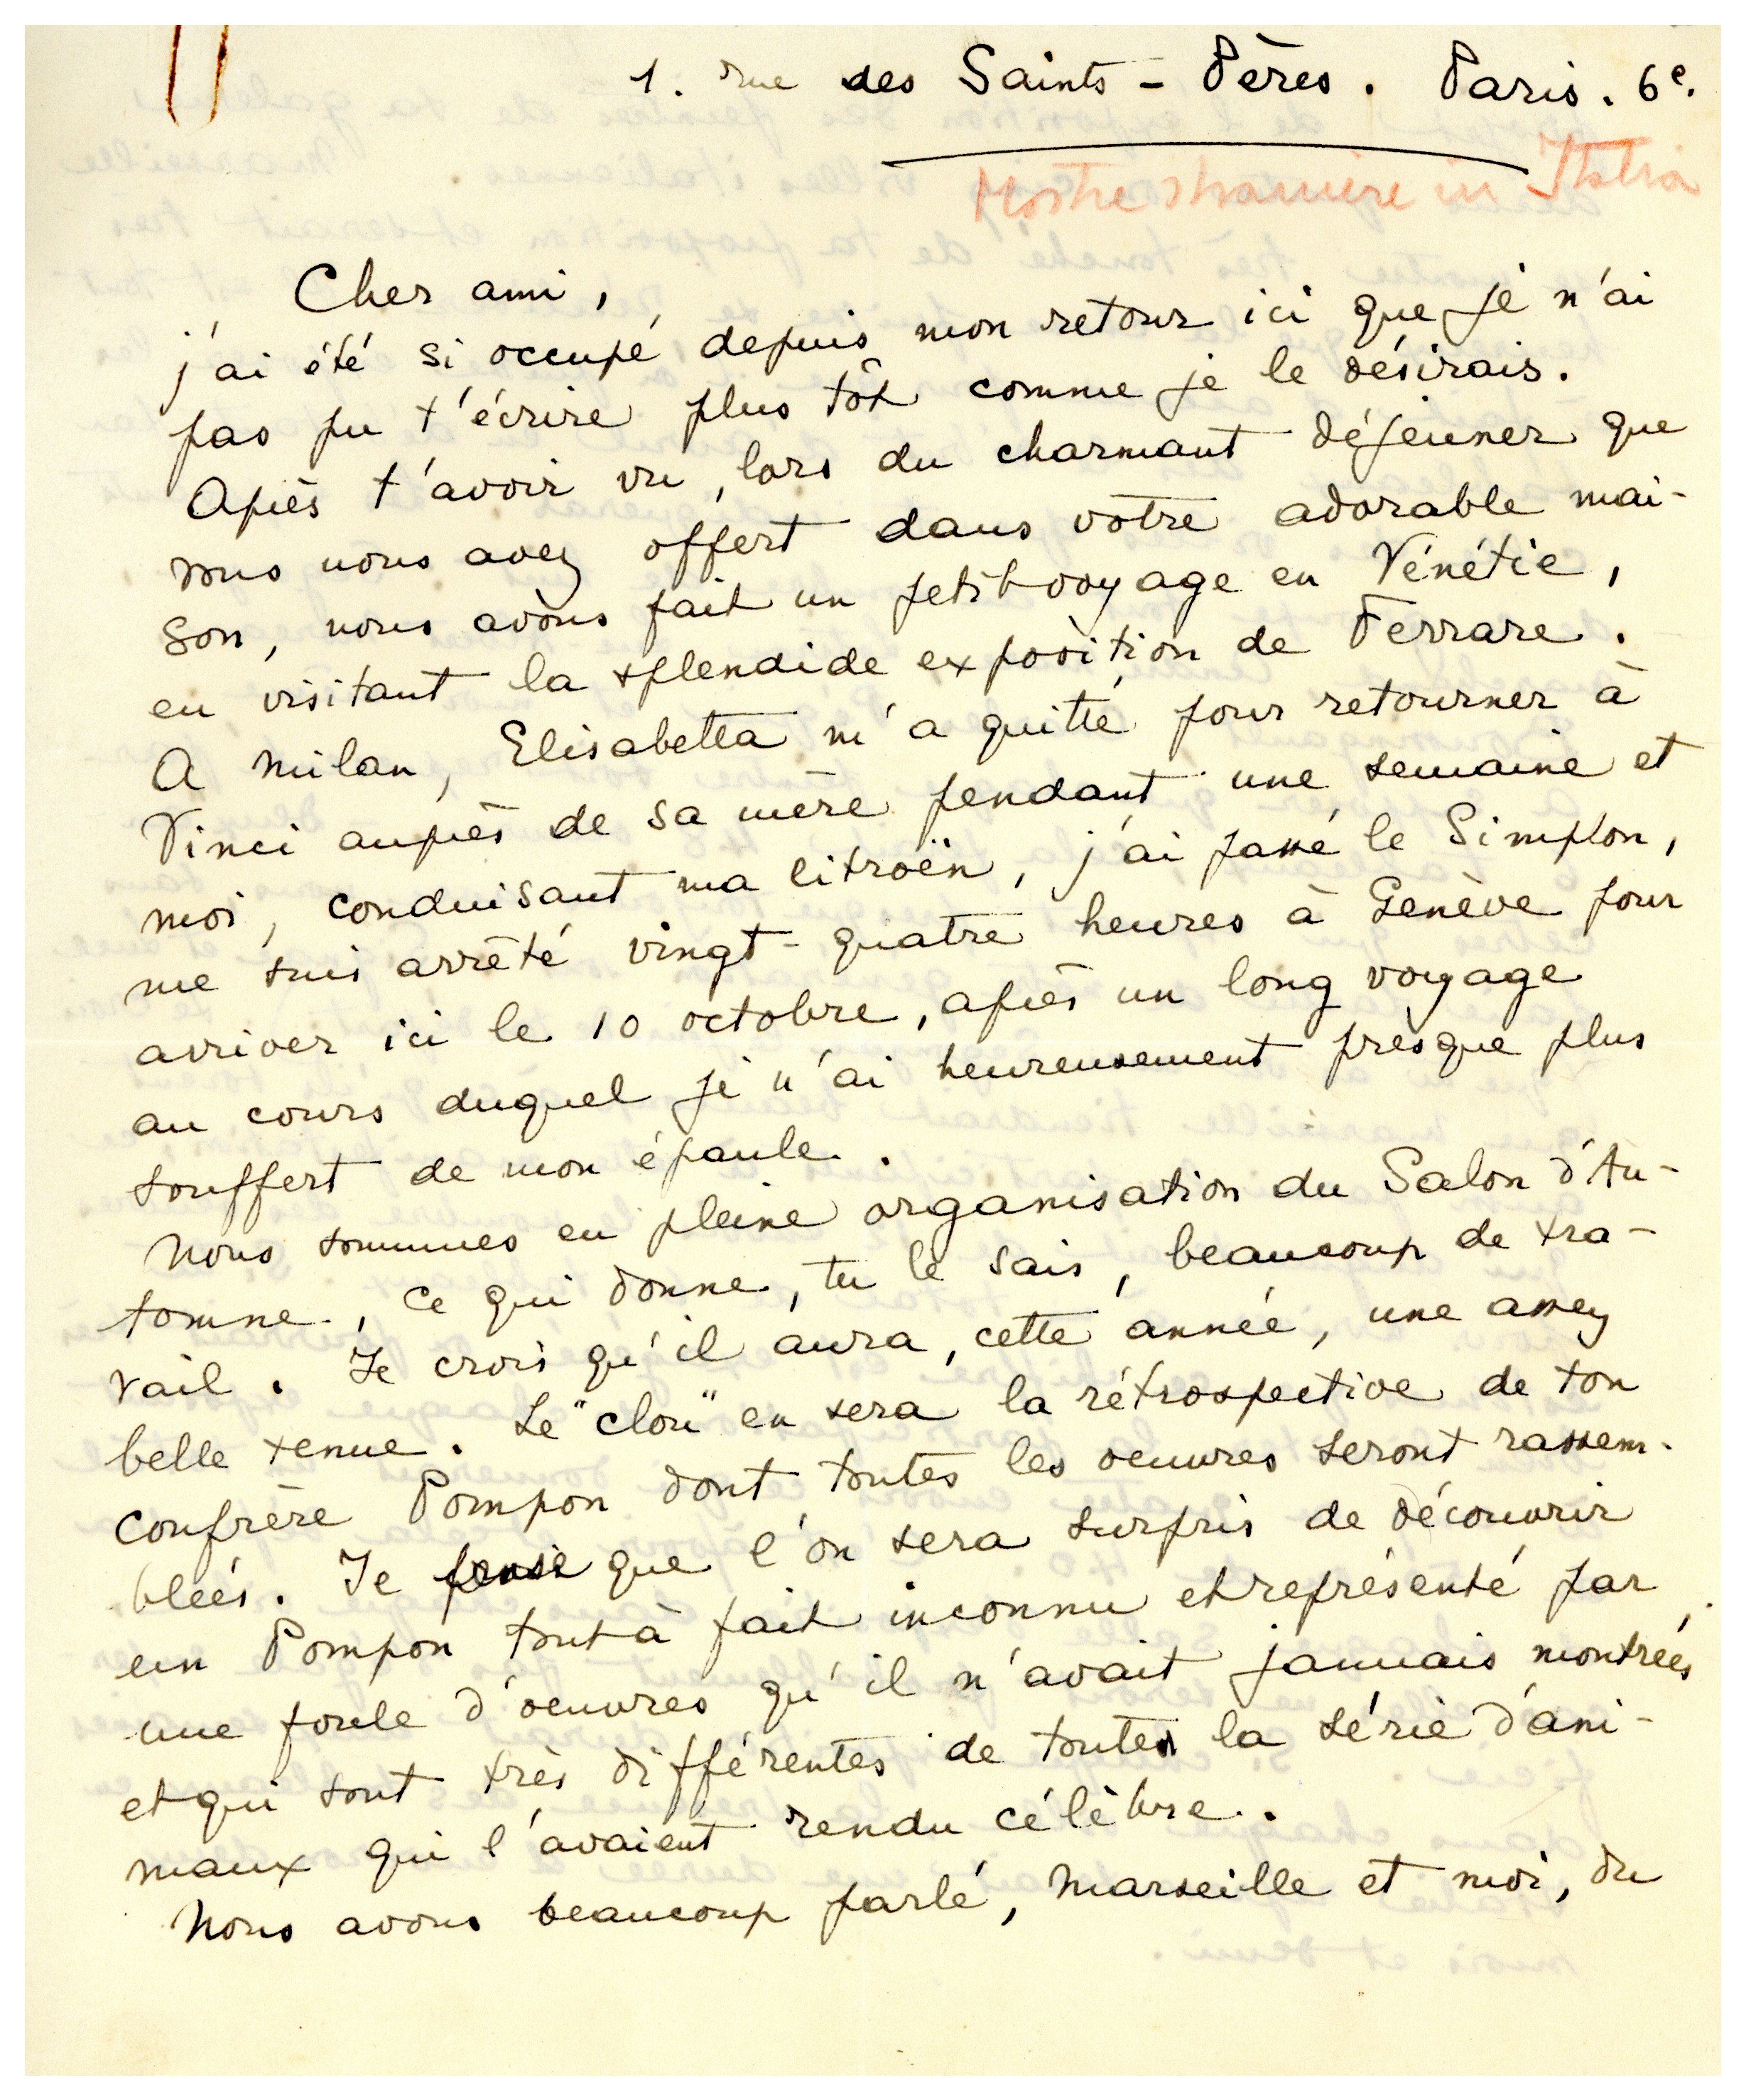 1. rue des Saints-Pères. Paris. 6e.
Mostre straniere in Italia
Cher ami,
j'ai été si occupé depuis mon retour ici que je n'ai
pas pu t'écrire plus tôt comme je le désirais.
Après t'avoir vu, lors du charmant déjeuner que
vous nous avez offert dans votre adorable mai-
son, nous avons fait un petit voyage en Vénétie,
en visitant la splendide exposition de Ferrare.
A Milan, Elisabetta m'a quitté pour retourner à
Vinci auprès de sa mère pendant une semaine et
moi, conduisant ma citroën, j'ai passé le Simplon,
me suis arrêté vingt-quatre heures à Genève pour
arriver ici le 10 octobre, après un long voyage
au cours duquel je n'ai heureusement presque plus
souffert de mon épaule.
Nous sommes en pleine organisation du Salon d'Au-
tomne, ce qui donne, tu le sais, beaucoup de tra-
vail. Je crois qu'il aura, cette année, une assez
belle tenue. Le "clou" en sera la rétrospective de ton
confrère Pompon dont toutes les oeuvres seront rassem-
blées. Je pense que l'on sera surpris de découvrir
un Pompon tout à fait inconnu et représenté par
une foule d'oeuvres qu'il n'avait jamais montrées
et qui sont très différentes de toute la série d'ani-
maux qui l'avaient rendu célèbre.
Nous avons beaucoup parlé, Marseille et moi, du